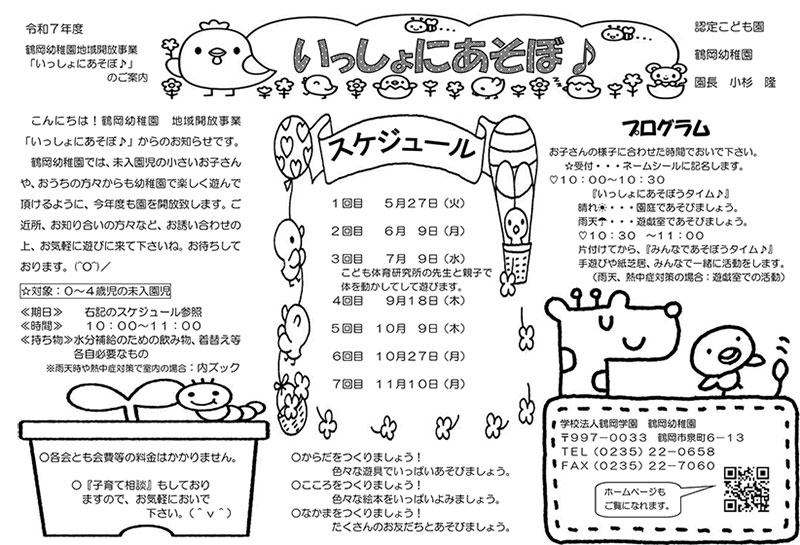 令和7年度
鶴岡幼稚園地域開放事業
「いっしょにあそぼ♪」
のご案内
いっしょにあそぼ♪
認定こども園
鶴岡幼稚園
園長 小杉 隆
こんにちは！鶴岡幼稚園 地域開放事業
「いっしょにあそぼ♪」からのお知らせです。
鶴岡幼稚園では、未入園児の小さいお子さん
や、おうちの方々からも幼稚園で楽しく遊んで
頂けるように、今年度も園を開放致します。ご
近所、お知り合いの方々など、お誘い合わせの
上、お気軽に遊びに来て下さいね。お待ちして
おります。(^O^)／
☆対象：0～4歳児の未入園児
≪期日≫ 右記のスケジュール参照
≪時間≫ 10：00～11：00
≪持ち物≫水分補給のための飲み物、着替え等
各自必要なもの
※雨天時や熱中症対策で室内の場合：内ズック
○各会とも会費等の料金はかかりません。
○『子育て相談』もしており
ますので、お気軽においで
下さい。(＾ｖ＾)
スケジュール
1回目 5月27日（火）
2回目 6月 9日（月）
3回目 7月 9日（水）
こども体育研究所の先生と親子で
体を動かしてして遊びます。
4回目 9月18日（木）
5回目 10月 9日（木）
6回目 10月27日（月）
7回目 11月10日（月）
○からだをつくりましょう！
色々な遊具でいっぱいあそびましょう。
○こころをつくりましょう！
色々な絵本をいっぱいよみましょう。
○なかまをつくりましょう！
たくさんのお友だちとあそびましょう。
プログラム
お子さんの様子に合わせた時間でおいで下さい。
☆受付・・・ネームシールに記名します。
♡10：00～10：30
『いっしょにあそぼうタイム♪』
晴れ☀・・・園庭であそびましょう。
雨天☂・・・遊戯室であそびましょう。
♡10：30 ～11：00
片付けてから、『みんなであそぼうタイム♪』
手遊びや紙芝居、みんなで一緒に活動をします。
（雨天、熱中症対策の場合：遊戯室での活動）
学校法人鶴岡学園 鶴岡幼稚園
〒997-0033 鶴岡市泉町6-13
TEL（0235）22-0658
FAX（0235）22-7060
ホームページも
ご覧になれます。